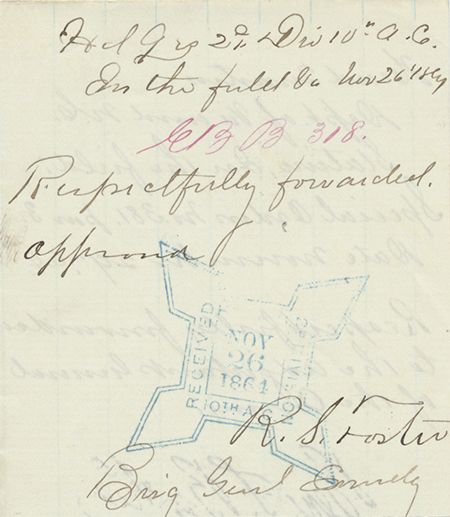 Hd Qrs 2d Div 10th A.C.
In the field Va Nov 26th 1864
E B B 318.
Respectfully forwarded.
approved
RECEIVED
NOV
26
1864
10TH A.C.
R. S. Foster
Brig Genl Comdg